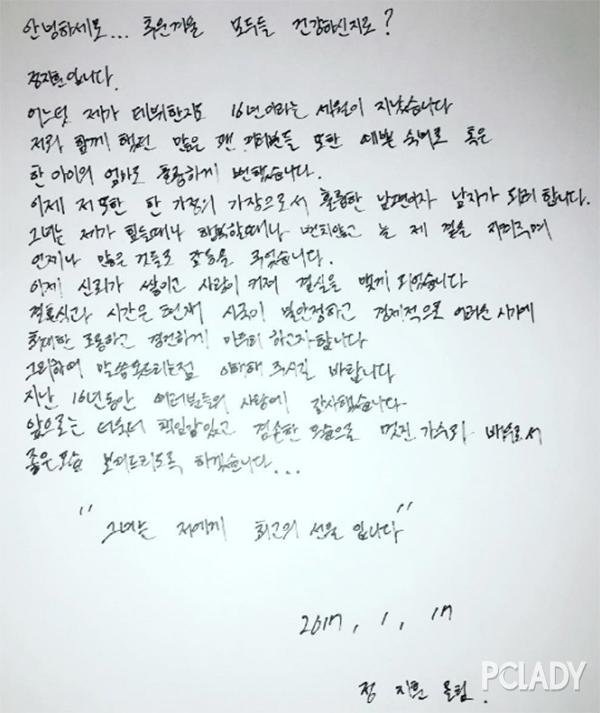 안녕하세요... 추운겨울 모두들 건강하신지요?
정지훈입니다.
어느덧 제가 데뷔한지도 16년이라는 세월이 지났습니다
저와 함께 했던 많은 팬 여러분들 또한 예쁜 숙녀로 혹은
한 아이의 엄마로 훌륭하게 변했습니다.
이제 저 또한 한 가정의 가장으로서 훌륭한 남편이자 남자가 되려 합니다.
그녀는 제가 힘들때나 행복할때나 변치않고 늘 제 곁을 지켜주며
언제나 많은 것들로 감동을 주었습니다.
이제 신뢰가 쌓이고 사랑이 커져 결실을 맺게 되었습니다
결혼식과 시간은 현재 시국이 불안정하고 경제적으로 어려운 시기에
최대한 조용하고 경건하게 마무리 하고자합니다
그리하여 말씀못드리는점 이해해 주시길 바랍니다
지난 16년동안 여러분들의 사랑에 감사했습니다
앞으로는 더욱더 책임감있고 겸손한 모습으로 멋진 가수와 배우로서
좋은모습 보여드리도록 하겠습니다...
"그녀는 저에게 최고의 선물 입니다"
2017. 1. 17
정 지훈 올림.
PCLADY